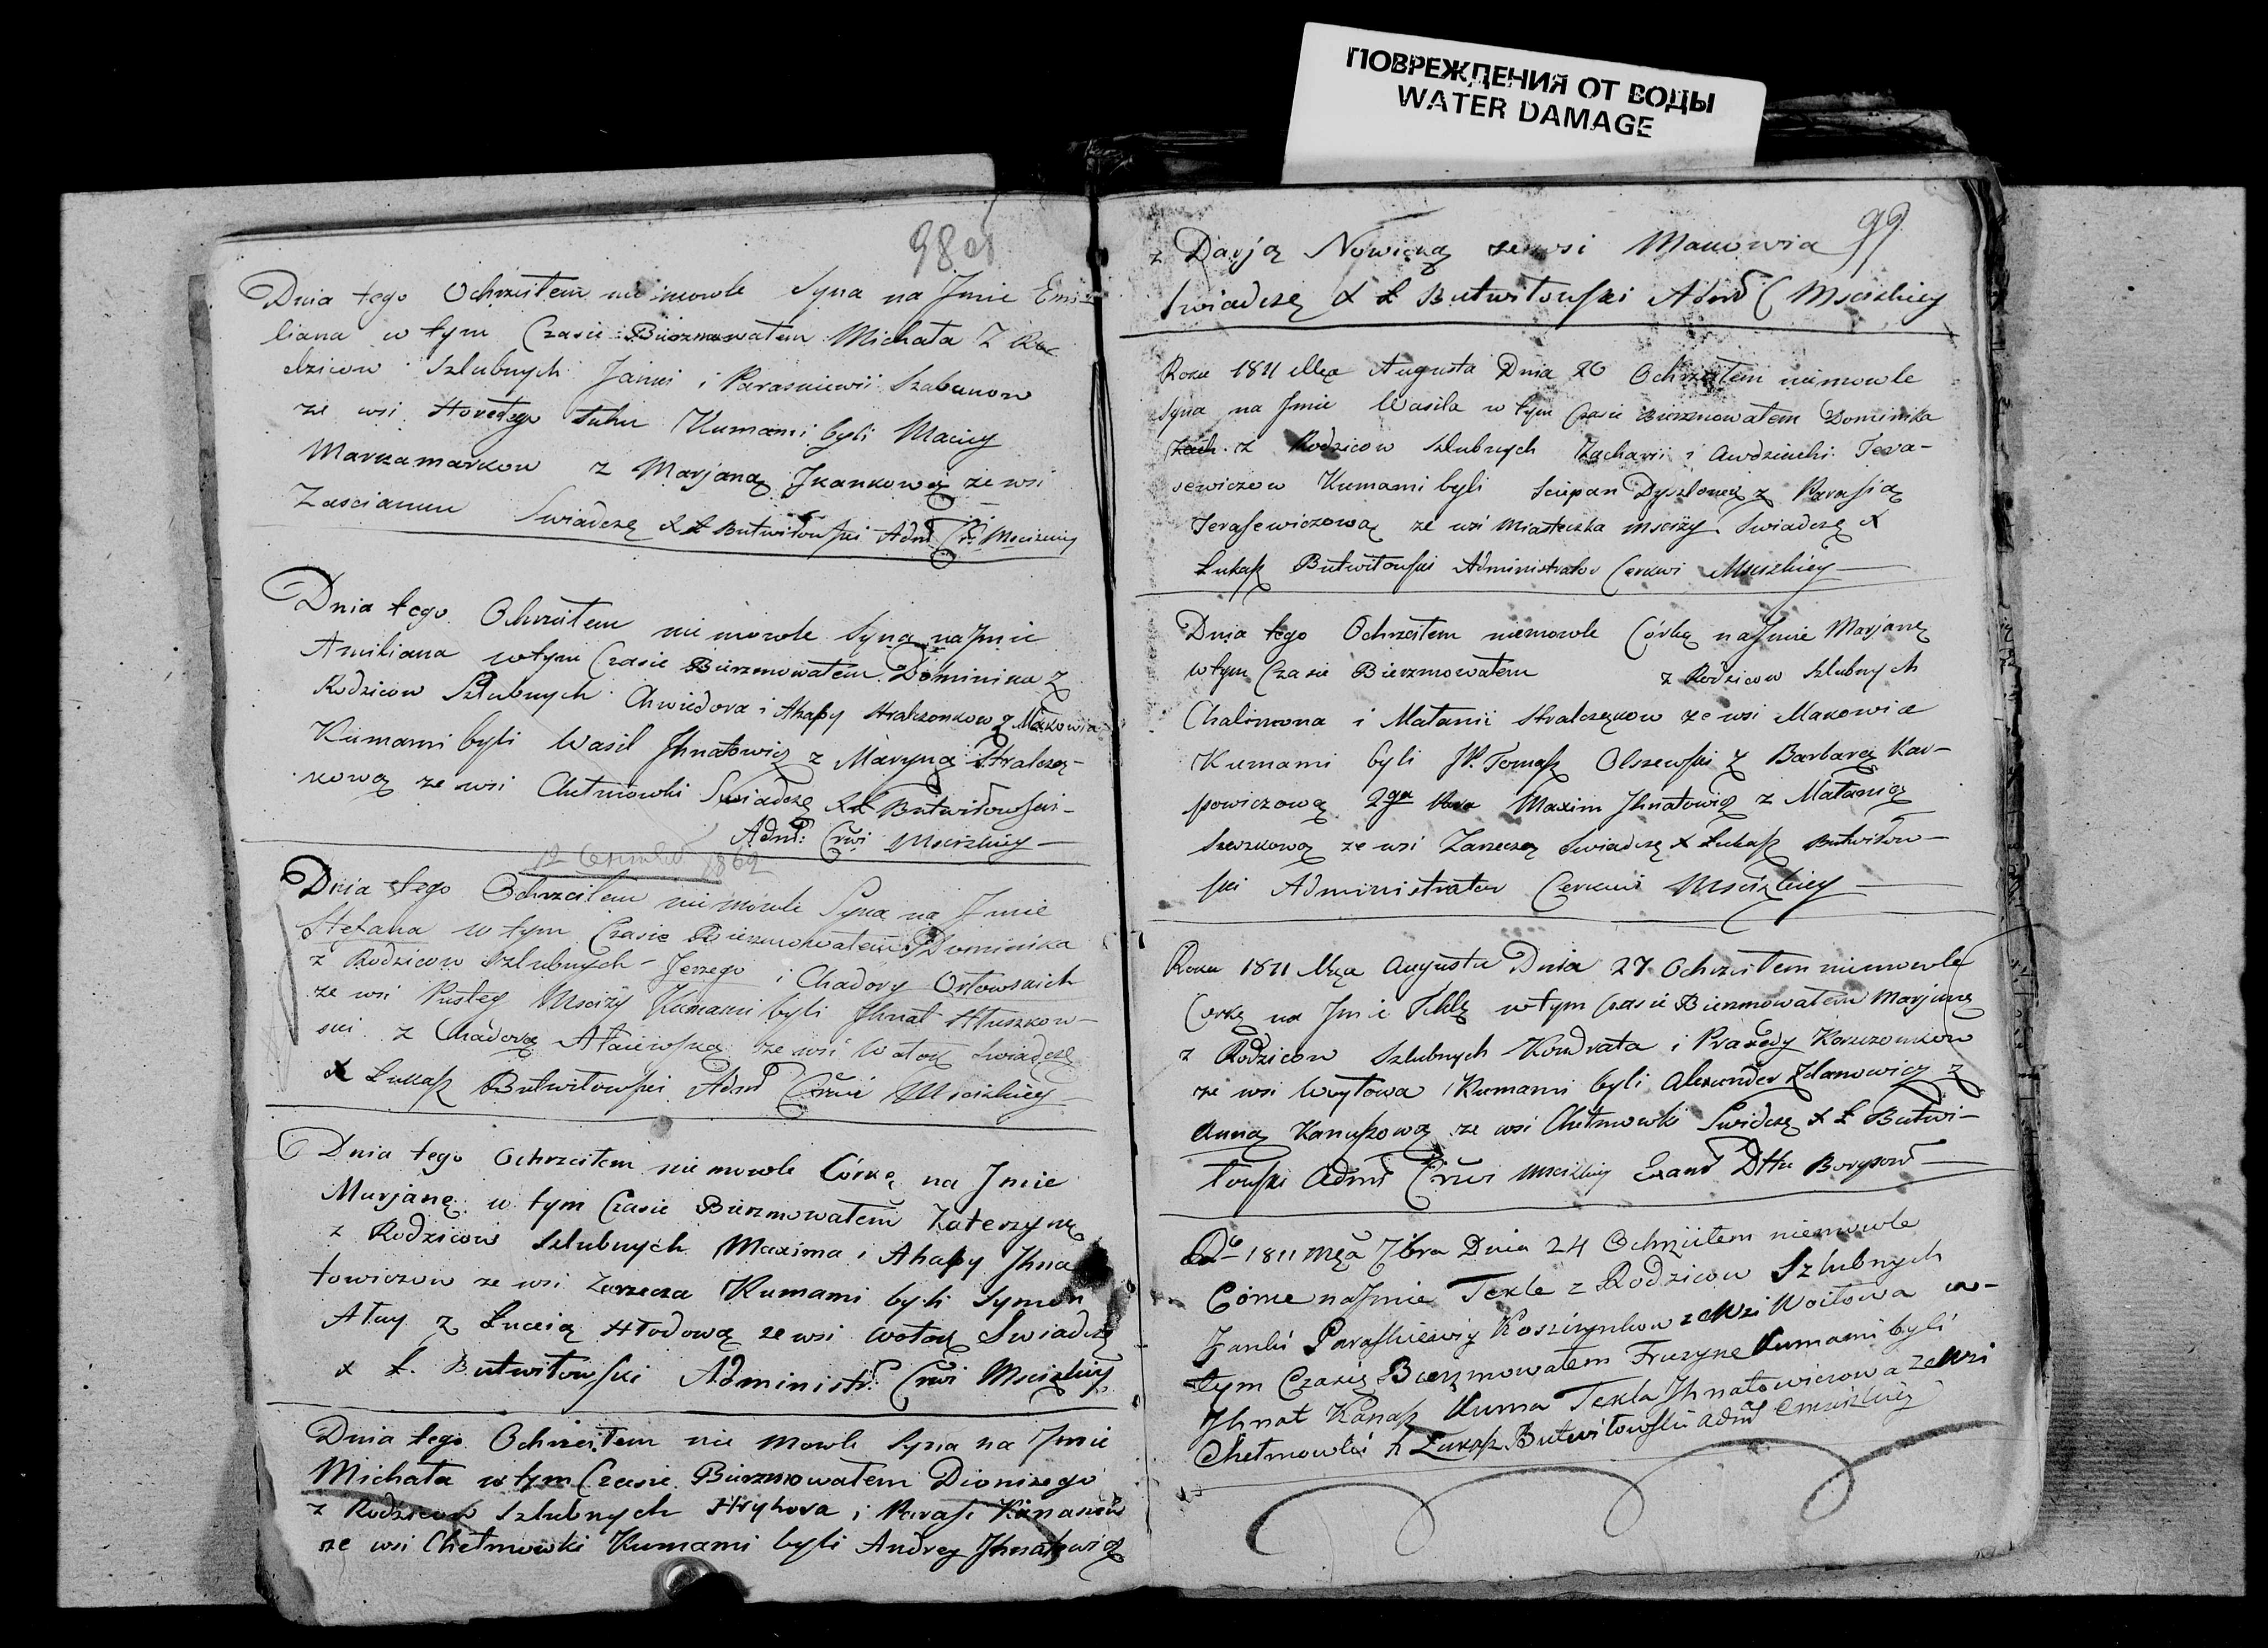 ПОВРЕЖДЕНИЯ ОТ ВОДЫ
WATER DAMAGE
98
Dnia tego Ochrzciłem niemowle Syna na Jmie Emi-
liana w tym Czasie Bierzmowałem Michała Z Ro-
dzicow Szlubnych Janki i Paraskiewii Szabanow
ze wsi Kumami byli Maciey
z Marjaną ze wsi
Swiadczę X Ł Butwiłowski Adm Crwi Mscizkiey
Dnia tego Ochrzciłem niemowle Syna na Jmie
Amiliana w tym Czasie Bierzmowałem Dominika Z
Rodzicow Szlubnych Chwiedora i Ahapy z Makowia
Kumami byli Wasil Jhnatowicz z Maryną Stralczą-
kową ze wsi Chełmowki Swiadczę X Ł Butwiłowski
Adm: Crwi Mscizkiey
12 1862
Dnia tego Ochrzciłem niemowle Syna na Jmie
Stefana w tym Czasie Bierzmowałem Dominika
z Rodzicow Szlubnych Jerzego i Chadory Orłowskich
ze wsi Pustey Mscizy Kumami byli Jhnat Hłuszkow-
ski z Chadorą ze wsi Wołok Swiadczę
X Łukasz Butwiłowski Adm Crwi Mscizkiey
Dnia tego Ochrzciłem niemowle Córkę na Jmie
Marjanę w tym Czasie Bierzmowałem Katerzynę
z Rodzicow Szlubnych Maxima i Ahapy Jhna-
towiczow ze wsi Zarzecza Kumami byli Symon
Ałay z Łucią Hłodową ze wsi Wołok Swiadczę
X Ł. Butwiłowski Administr: Crwi Mscizkiey
Dnia tego Ochrzciłem niemowle Syna na Jmie
Michała w tym Czasie Bierzmowałem Dionizego
z Rodzicow Szlubnych Hryhora i Parasi Kanaszow
ze wsi Chełmowki Kumami byli Andrey Jhnatowicz
99
z Darją Nowicką ze wsi Makowia
Swiadczę X Ł Butwiłowski Adm C Mscizkiey
Roku 1811 Mca Augusta Dnia 20 Ochrzciłem niemowle
Syna na Jmie Wasila w tym Czasie Bierzmowałem Dominika
z Rodzicow Szlubnych Zacharii i Awdziuchi Tera-
sewiczow Kumami byli Sciepan z Parasią
Terasewiczową ze wsi Miasteczka Mscizy Swiadczę X
Łukasz Butwiłowski Administrator Cerkwi Mscizkiey
Dnia tego Ochrzciłem niemowle Córkę na Jmie Marjanę
w tym Czasie Bierzmowałem z Rodzicow Szlubnych
Chalimona i Małanii Stralczykow ze wsi Makowia
Kumami byli JP. Tomasz Olszewski z Barbarą Kar-
powiczową 2ga Para Maxim Jhnatowicz z Małanią
ze wsi Zarzecza Swiadczę X Łukasz Butwiłow-
ski Administrator Cerkwi Mscizkiey
Roku 1811 Mca Augusta Dnia 27 Ochrzciłem niemowle
Corkę na Jmie Teklę w tym Czasie Bierzmowałem Marjanę
z Rodzicow Szlubnych Kondrata i Praxedy
ze wsi Woytowa Kumami byli Alexander Zdanowicz z
Anną Kanaszową ze wsi Chełmowki Swidczę X Ł Butwi-
łowski Adm Crwi Mscizkiey Exam Dttu Borysow
1811 Mca 7bra Dnia 24 Ochrzciłem niemowle
Córke na Jmie Tekle z Rodzicow Szlubnych
Janki Paraskiewiy ze Wsi Woitowa w
tym Czasie Bierzmowałem Fruzyne Kumami byli
Jhnat Kanasz Kuma Tekla Jhnatowiczowa ze Wsi
Chełmowki X Łukasz Butwiłowski adm Cmscizkiey